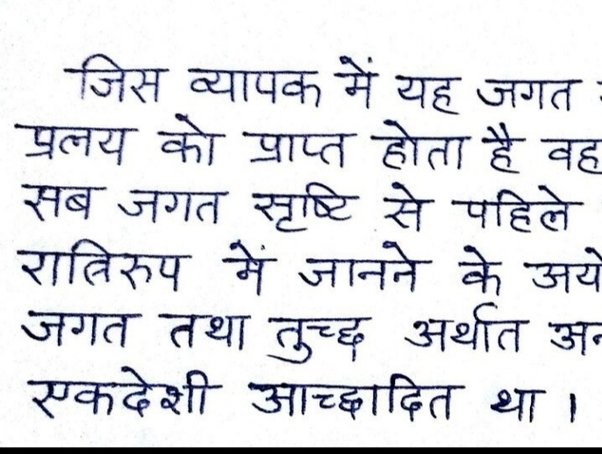 जिस व्यापक में यह जगत
प्रलय को प्राप्त होता है वह
सब जगत सृष्टि से पहिले
रात्रिरुप में जानने के अयो
जगत तथा तुच्छ अर्थात अन
एकदेशी आच्छादित था ।